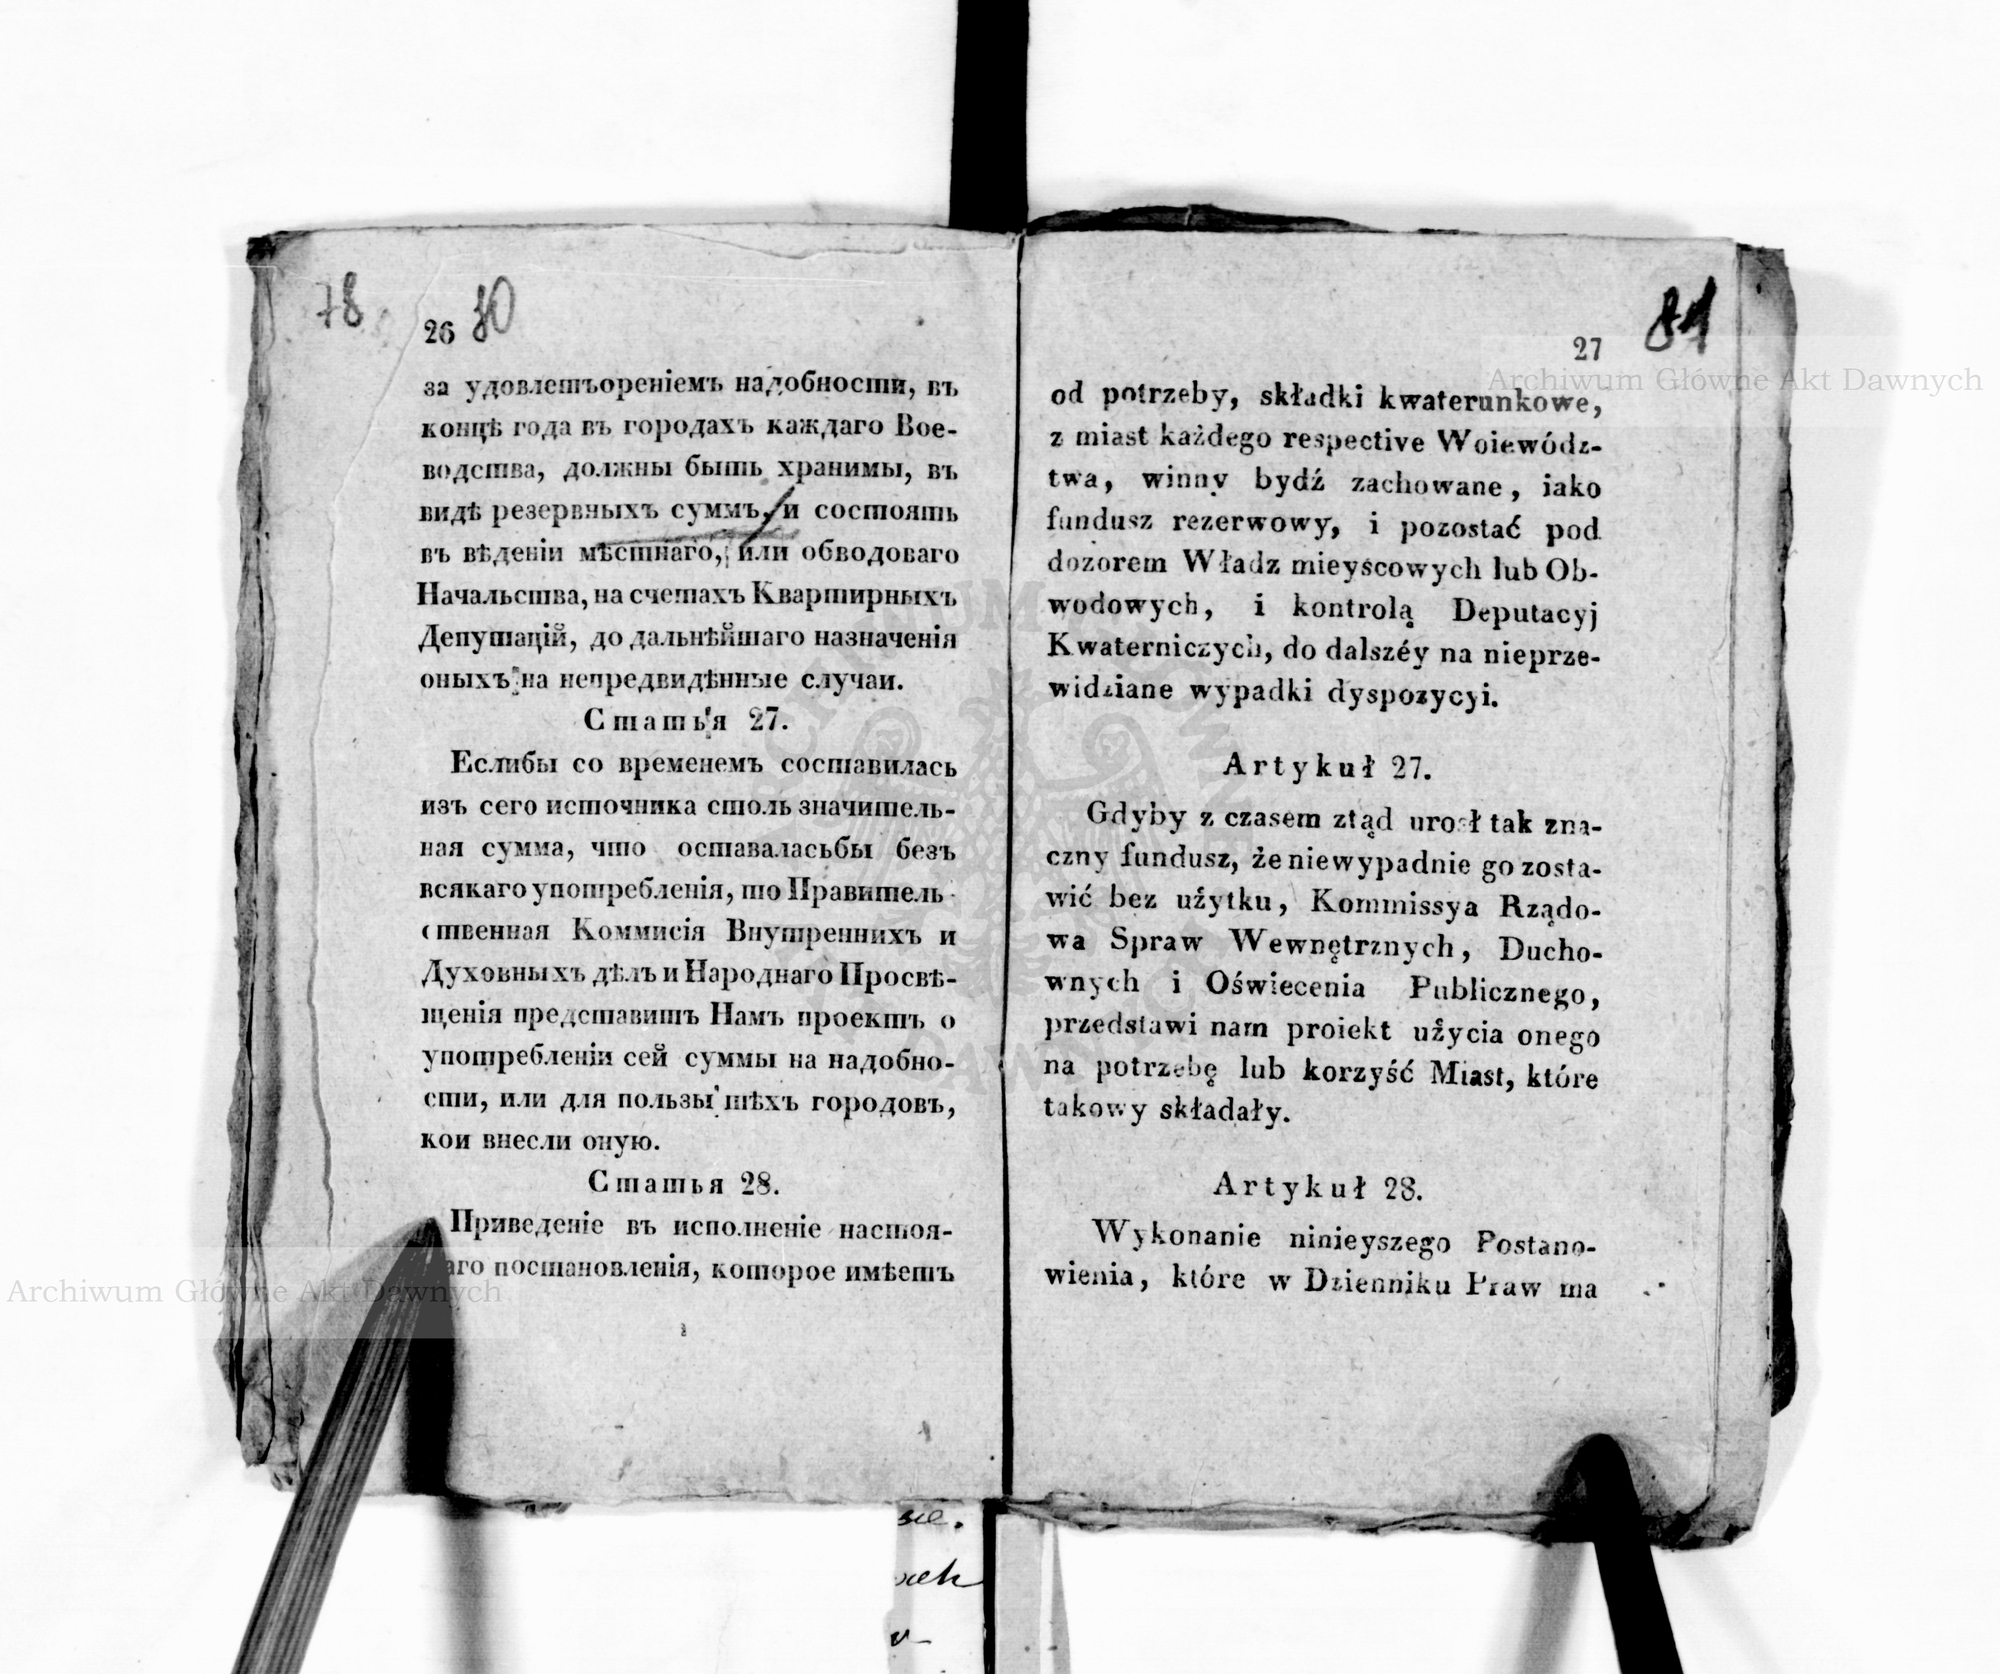 78
26 80
за удовлетъореніемъ надобности, въ
концѣ года въ городахъ каждаго Вое-
водства, должны быть хранимы, въ
видѣ резервныхъ суммъ, и состоять
въ вѣденіи мѣстнаго, или обводоваго
Начальства, на счетахъ Квартирныхъ
Депутацій, до дальнѣйшаго назначенія
оныхъ на непредвидѣнные случаи.
Статья 27.
Еслибы со временемъ составилась
изъ сего источника столь значитель-
ная сумма, что оставаласьбы безъ
всякаго употребленія, то Правитель-
ственная Коммисія Внутреннихъ и
Духовныхъ дѣлъ и Народнаго Просвѣ-
щенія представитъ Намъ проектъ о
употребленіи сей суммы на надобно-
сти, или для пользы тѣхъ городовъ,
кои внесли оную.
Статья 28.
Приведеніе въ исполненіе настоя-
аго постановленія, которое имѣетъ
81
27
od potrzeby, składki kwaterunkowe,
z miast każdego respective Woiewódz-
twa, winny bydź zachowane, iako
fundusz rezerwowy, i pozostać pod
dozorem Władz mieyscowych lub Ob-
wodowych, i kontrolą Deputacyj
Kwaterniczych, do dalszéy na nieprze-
widziane wypadki dyspozycyi.
Artykuł 27.
Gdyby z czasem ztąd urosł tak zna-
czny fundusz, że niewypadnie go zosta-
wić bez użytku, Kommissya Rządo-
wa Spraw Wewnętrznych, Ducho-
wnych i Oświecenia Publicznego,
przedstawi nam proiekt użycia onego
na potrzebę lub korzyść Miast, które
takowy składały.
Artykuł 28.
Wykonanie ninieyszego Postano-
wienia, które w Dzienniku Praw ma
Archiwum Główne Akt Dawnych
Archiwum Główne Akt Dawnych